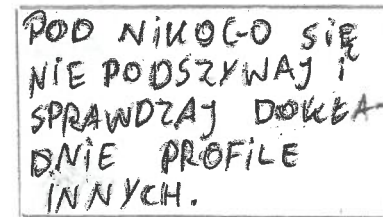 POD NIKOGO SIĘ
NIE PODSZYWAJ I
SPRAWDZAJ DOKŁA-
DNIE PROFILE
INNYCH.